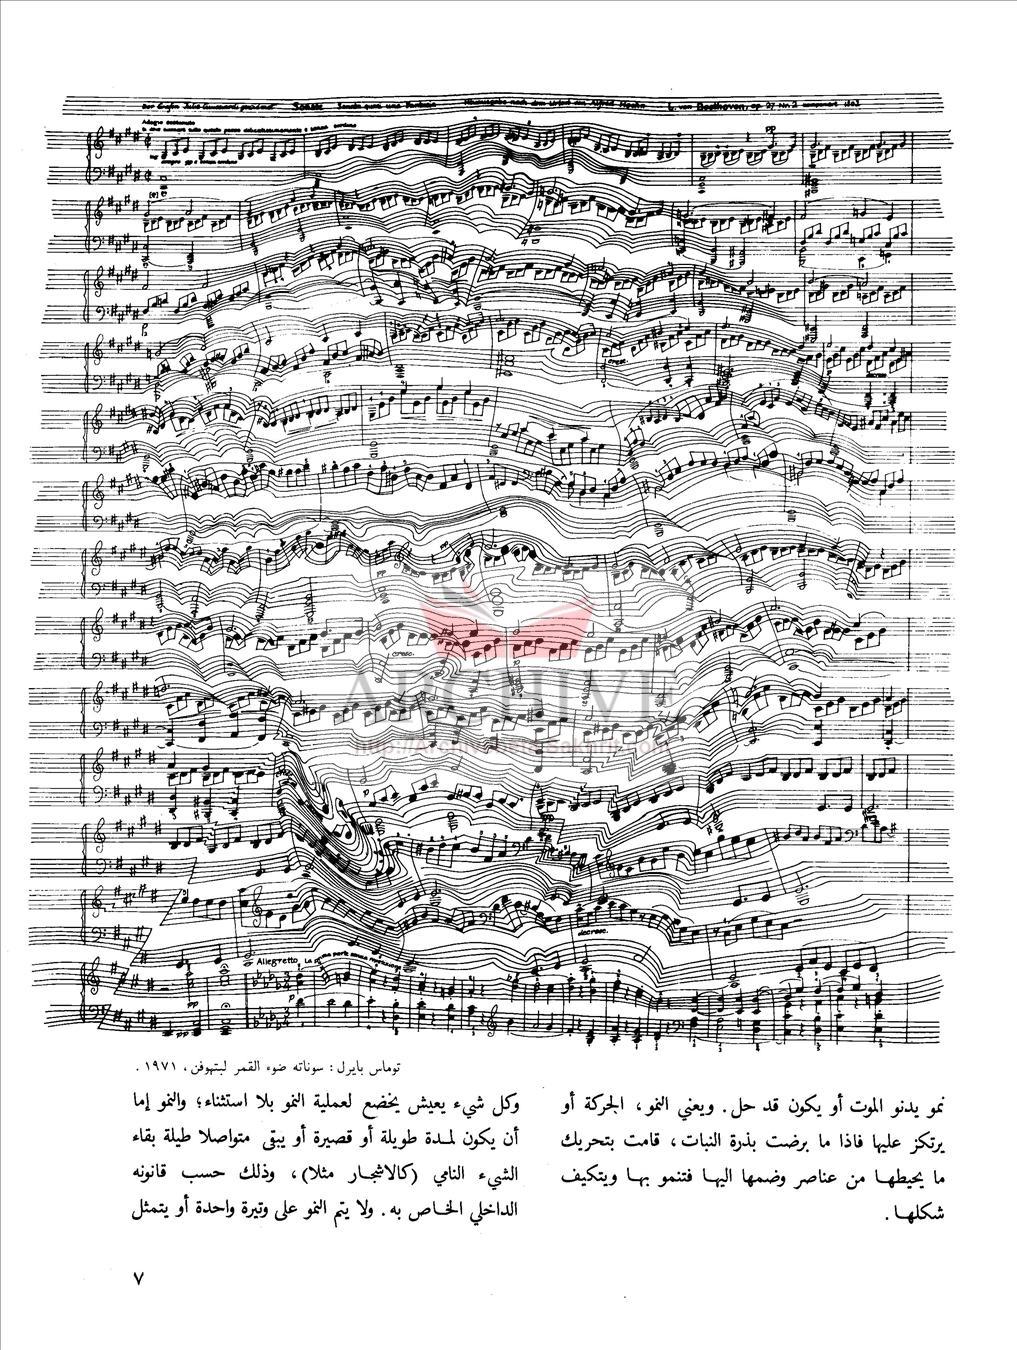 Sonate
L. van Beethoven, op. 27 Nr. 2
Adagio sostenuto
pp
cresc.
decresc.
pp
cresc.
p
pp
decresc.
Allegretto
pp
p
ARCHIVE
توماس بايرل : سوناته ضوء القمر لبتهوفن ، ١٩٧١ .
نمو يدنو الموت أو يكون قد حل . ويعني النمو ، الحركة أو
يرتكز عليها فاذا ما برضت بذرة النبات ، قامت بتحريك
ما يحيطها من عناصر وضمها اليها فتنمو بها ويتكيف
شكلها .
وكل شيء يعيش يخضع لعملية النمو بلا استثناء ؛ والنمو إما
أن يكون لمدة طويلة أو قصيرة أو يبقى متواصلا طيلة بقاء
الشيء النامي (كالاشجار مثلا) ، وذلك حسب قانونه
الداخلي الخاص به . ولا يتم النمو على وتيرة واحدة أو يتمثل
٧